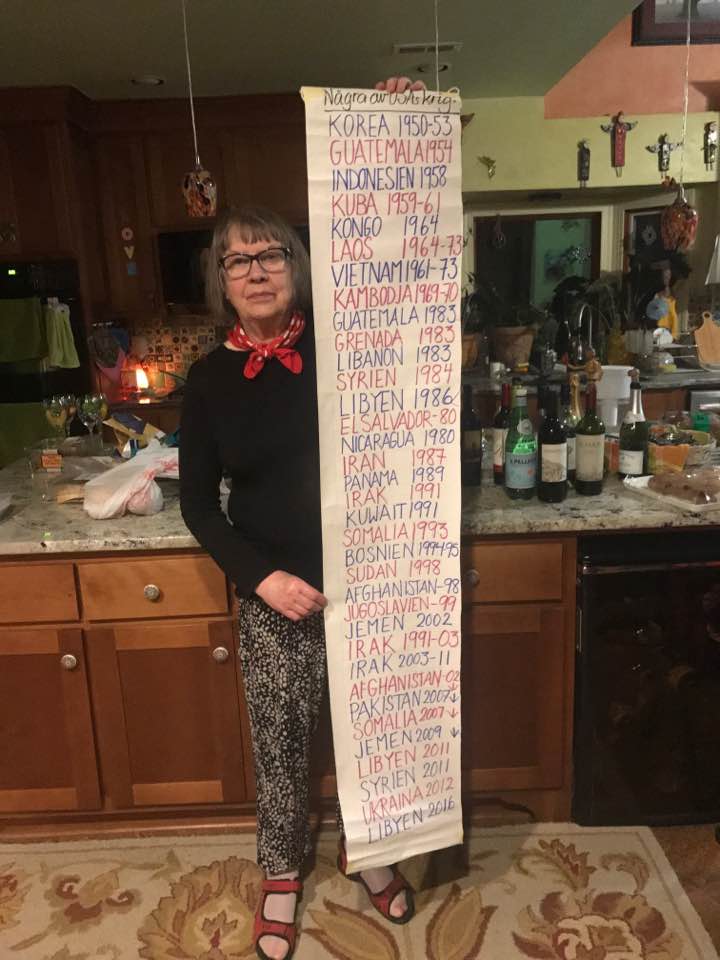 Några av USAs krig.
KOREA 1950-53
GUATEMALA 1954
INDONESIEN 1958
KUBA 1959-61
KONGO 1964
LAOS 1964-73
VIETNAM 1961-73
KAMBODJA 1969-70
GUATEMALA 1983
GRENADA 1983
LIBANON 1983
SYRIEN 1984
LIBYEN 1986
EL SALVADOR-80
NICARAGUA 1980
IRAN 1987
PANAMA 1989
IRAK 1991
KUWAIT 1991
SOMALIA 1993
BOSNIEN 1994-95
SUDAN 1998
AFGHANISTAN-98
JUGOSLAVIEN-99
JEMEN 2002
IRAK 1991-03
IRAK 2003-11
AFGHANISTAN-02
PAKISTAN 2007↓
SOMALIA 2007→
JEMEN 2009 ↓
LIBYEN 2011
SYRIEN 2011
UKRAINA 2012
LIBYEN 2016
S.PELLEGRINO